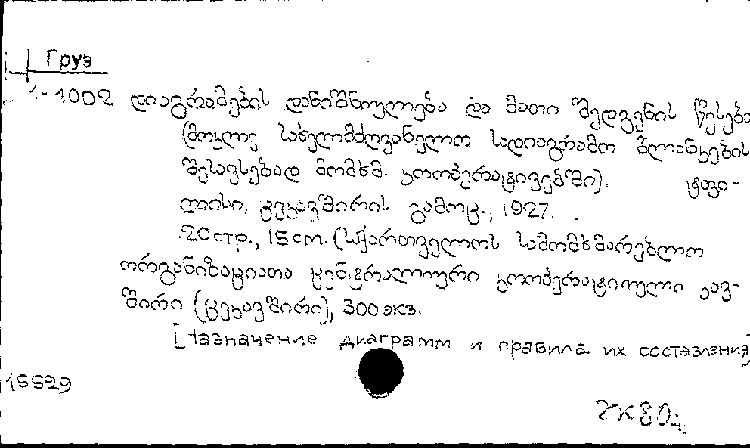 Груз
1-1002 დიაგრამების დანიშნულება და მათი შედგენის წესები
(მოკლე სახელმძღვანელო სადიაგრამო ბლანკების
შესავსებად მომხმ. კოოპერატივებში). ტფი-
ლისი, ცეკავშირის გამოც., 1927.
20 стр., 15 cm. (საქართველოს სამომხმარებლო
ორგანიზაციათა ცენტრალური კოოპერატიული კავ-
შირი (ცეკავშირი), 300 экз.
[Назначение диаграмм и правила их составления]
15529